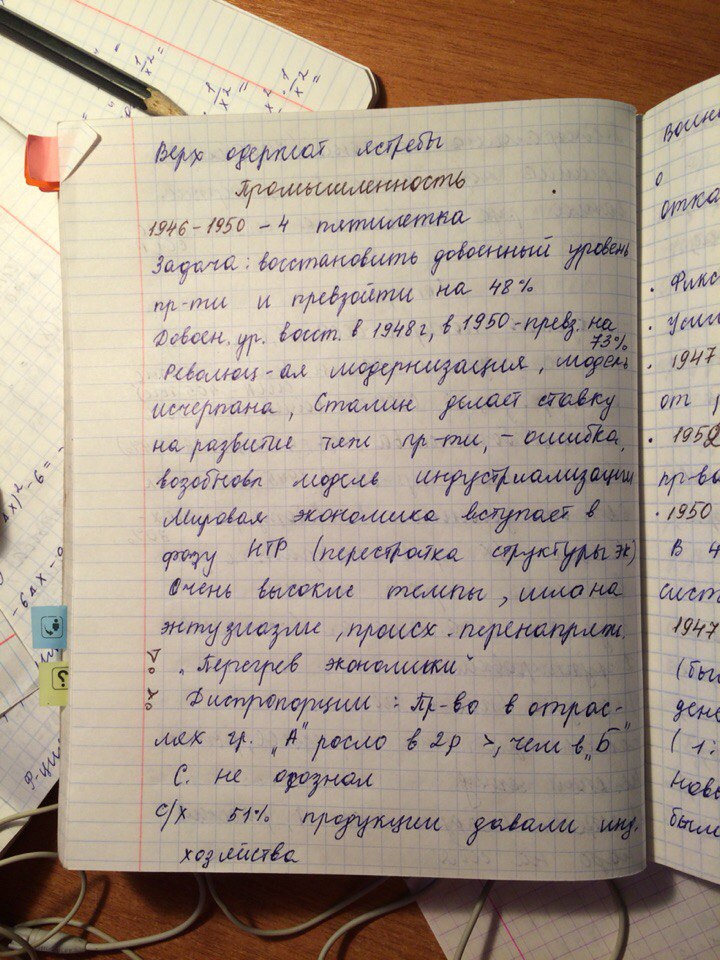 Верх одержат ястребы
Промышленность
1946-1950 - 4 пятилетка
Задача: восстановить довоенный уровень
пр-ти и превзойти на 48%
Довоен. ур. восст. в 1948г, в 1950-превз. на
73%
Революц-ая модернизация, модель
исчерпана, Сталин делает ставку
на развитие тяж пр-ти, - ошибка,
возобновл модель индустриализации
Мировая экономика вступает в
фазу НТР (перестройка структуры эк)
Очень высокие темпы, шла на
энтузиазме, происх. перенапряж.
"Перегрев экономики"
Диспропорции: Пр-во в отрас-
лях гр. "А" росло в 2р >, чем в "Б"
С. не осознал
с/х 51% продукции давали инд.
хозяйства
Воин
о
отка
· Фикс
· Усил
· 1947
от
· 1952
пр-во
· 1950
В 4
сист
1947
(был
дене
(1:
новы
было